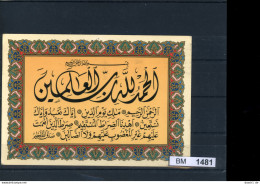 الحمد لله رب العالمين
الرحمن الرحيم ملك يوم الدين إياك نعبد وإياك
نستعين اهدنا الصراط المستقيم صراط الذين أنعمت
عليهم غير المغضوب عليهم ولا الضالين
BM 1481